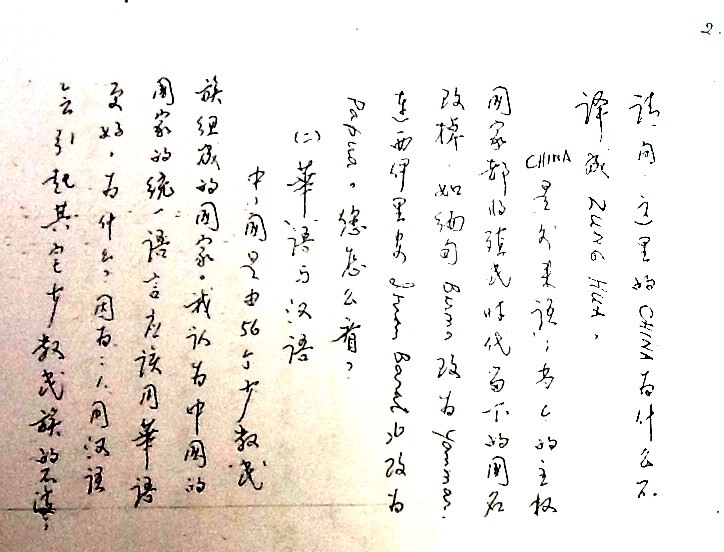 2.
请问这里的CHINA为什么不
译成 ZUNG HUA,
CHINA 是外来语; 的主权
国家都将殖民时代留下的国名
改掉.如缅甸 Burma 改为 Yanmar.
连西伊里安 Irian Barat 也改为
Papua。您怎么看?
(二) 華语与汉语
中国是由56个少数民
族组成的国家。我认为中国的
国家的统一语言应该用華语
更好,为什么?因为:1.用汉语
会引起其它少数民族的不满;